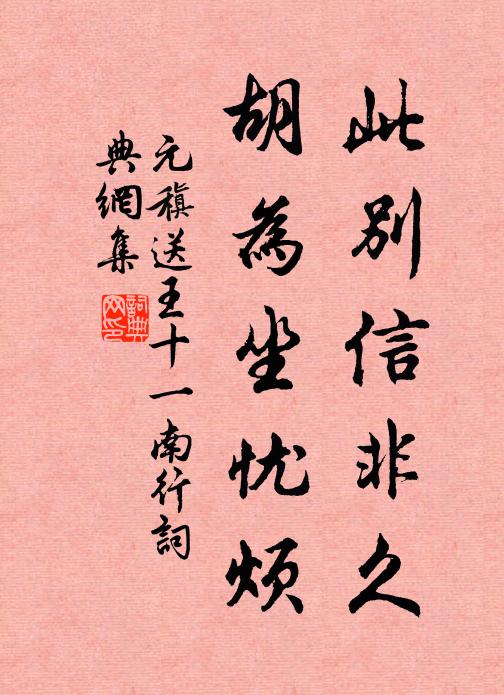 此别信非久
胡為坐忧烦
元稹送王十一南行詞
典網集
詞典
网印